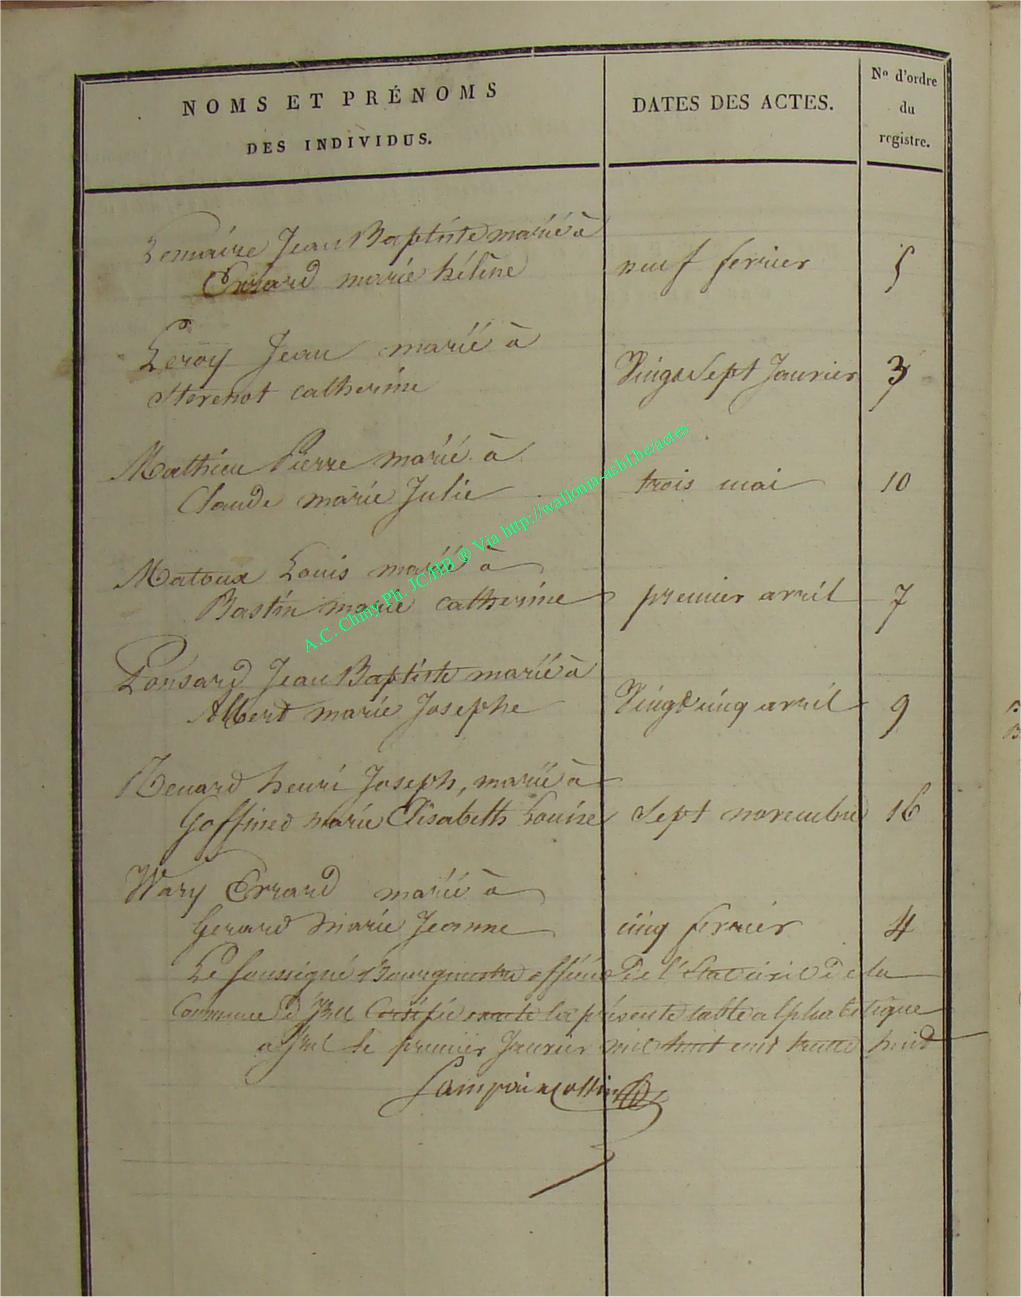 NOMS ET PRÉNOMS
DES INDIVIDUS.
DATES DES ACTES.
Nº d'ordre
du
registre.
Lemaire Jean Baptiste marié à
Errard marie héléne
neuf fevrier
5
Leroy Jean marié à
catherine
Vingt Sept Janvier
3
Mathieu Pierre marié à
Claude marie Julie
trois mai
10
Matoux Louis marié à
Bastin marie catherine
premier avril
7
Ponsard Jean Baptiste marié à
Albert marie Josephe
Vingt cinq avril
9
Renard henri Joseph, marié à
Goffinet marie Elisabeth Louise
Sept novembre
16
Wary Errard marié à
Gerard marie Jeanne
cinq fevrier
4
Le Soussigné Bourgmestre officier de l'Etat civil de la
Commune d' Certifie exacte la présente table alphabétique
a le premier Janvier mil huit cent trente huit
A.C. Chiny Ph. JC/HB ® Via http://wallonia-asbl.be/actes